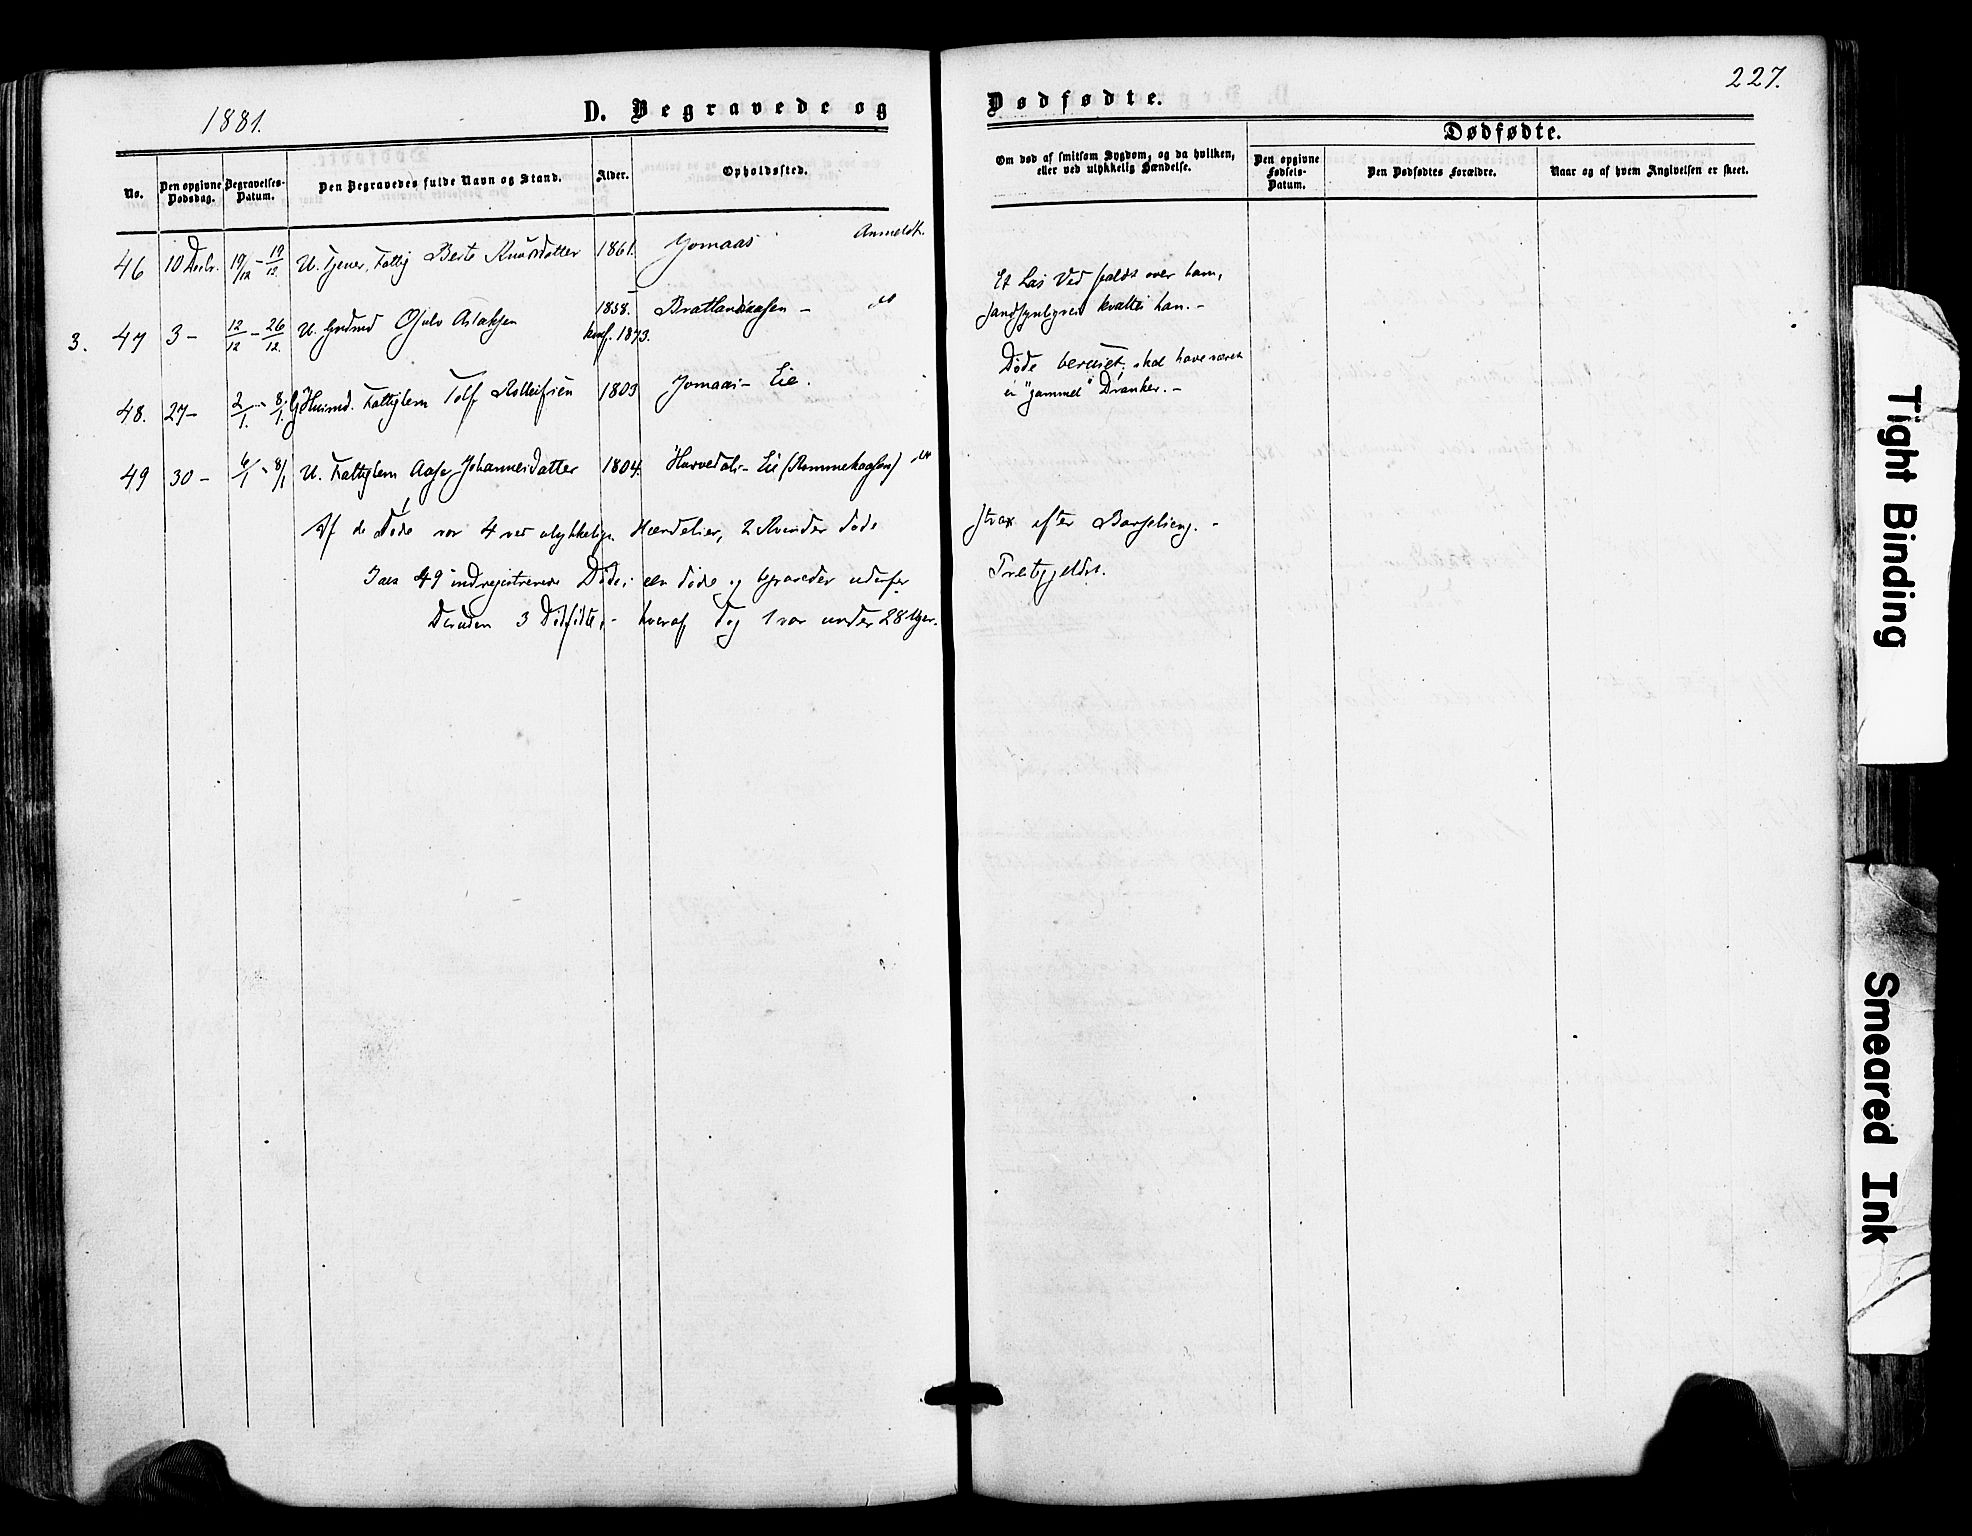 227.
1881.
D. Begravede og Dødfødte.
Dødfødte.
No.
Den opgivne Dødsdag.
Begravelses-Datum.
Den Begravedes fulde Navn og Stand.
Alder.
Opholdssted.
Om død af smitsom Sygdom, og da hvilken, eller ved ulykkelig Hændelse.
Den opgivne Fødsels-Datum.
Den Dødfødtes Forældre.
Naar og af hvem Angivelsen er skeet.
46 10 Decbr. 19/12 - 19/12 U. Tjener, Fattig Berte Knudsdatter 1861. Jomaas Anmeldt.
Et Læs Ved faldt over ham,
3. 47 3 - 12/12 - 26/12 U. Gaardmd 1858. konf. 1873. -
kvalte ham. -
Døde beruset; skal have været
48. 27 - 2/1 - 8/1 Fattiglem 1803 Jomaas - Eie.
en "gammel" Dranker. -
49 30 - 6/1 - 8/1 U. Fattiglem Aase Johannesdatter 1804.
Af de Døde var 4 ved ulykkelige Hændelser, 2 Kvinder døde strax efter Barselseng. -
49 indregistrerede Døde; een døde og begravedes udenfor Præstegjeldet.
Desuden 3 Dødfødte, - hvoraf dog 1 var under 28 Uger.
Tight Binding
Smeared Ink